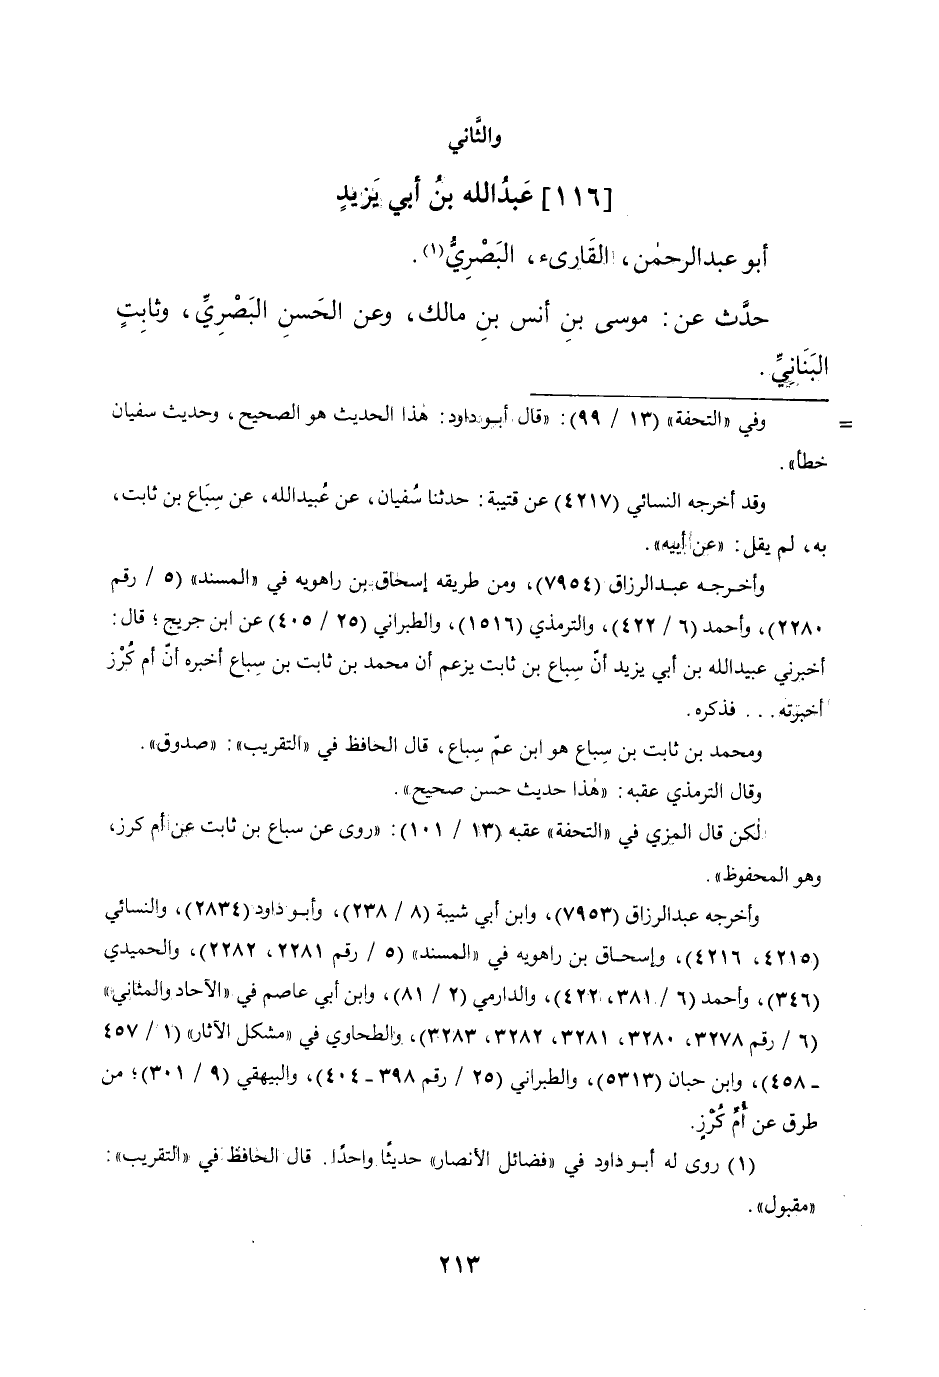 والثَّاني
[١١٦] عَبدُالله بنُ أبي يَزيدٍ
أبو عبدالرحمٰن، القَارىء، البَصْرِيُّ(١).
حدَّث عن: موسى بنِ أنس بنِ مالك، وعن الحَسنِ البَصْرِيِّ، وثابِتٍ
البَنَانِيِّ.
= وفي «التحفة» (١٣ / ٩٩): «قال أبو داود: هٰذا الحديث هو الصحيح، وحديث سفيان
خطأ».
وقد أخرجه النسائي (٤٢١٧) عن قتيبة: حدثنا سُفيان، عن عُبيدالله، عن سِبَاع بن ثابت،
به، لم يقل: «عن أبيه».
وأخرجه عبدالرزاق (٧٩٥٤)، ومن طريقه إسحاق بن راهويه في «المسند» (٥ / رقم
٢٢٨٠)، وأحمد (٦ / ٤٢٢)، والترمذي (١٥١٦)، والطبراني (٢٥ / ٤٠٥) عن ابن جريج؛ قال:
أخبرني عبيدالله بن أبي يزيد أنّ سِباع بن ثابت يزعم أن محمد بن ثابت بن سِباع أخبره أنّ أم كُرْز
أخبرته... فذكره.
ومحمد بن ثابت بن سِباع هو ابن عمّ سِباع، قال الحافظ في «التقريب»: «صدوق».
وقال الترمذي عقبه: «هٰذا حديث حسن صحيح».
لٰكن قال المزي في «التحفة» عقبه (١٣ / ١٠١): «روى عن سباع بن ثابت عن أم كرز،
وهو المحفوظ».
وأخرجه عبدالرزاق (٧٩٥٣)، وابن أبي شيبة (٨ / ٢٣٨)، وأبو داود (٢٨٣٤)، والنسائي
(٤٢١٥، ٤٢١٦)، وإسحاق بن راهويه في «المسند» (٥ / رقم ٢٢٨١، ٢٢٨٢)، والحميدي
(٣٤٦)، وأحمد (٦ / ٣٨١، ٤٢٢)، والدارمي (٢ / ٨١)، وابن أبي عاصم في «الآحاد والمثاني»
(٦ / رقم ٣٢٧٨، ٣٢٨٠، ٣٢٨١، ٣٢٨٢، ٣٢٨٣)، والطحاوي في «مشكل الآثار» (١ / ٤٥٧
ـ ٤٥٨)، وابن حبان (٥٣١٣)، والطبراني (٢٥ / رقم ٣٩٨ ـ ٤٠٤)، والبيهقي (٩ / ٣٠١)؛ من
طرق عن أُمِّ كُرْزٍ.
(١) روى له أبو داود في «فضائل الأنصار» حديثًا واحدًا. قال الحافظ في «التقريب»:
«مقبول».
٢١٣